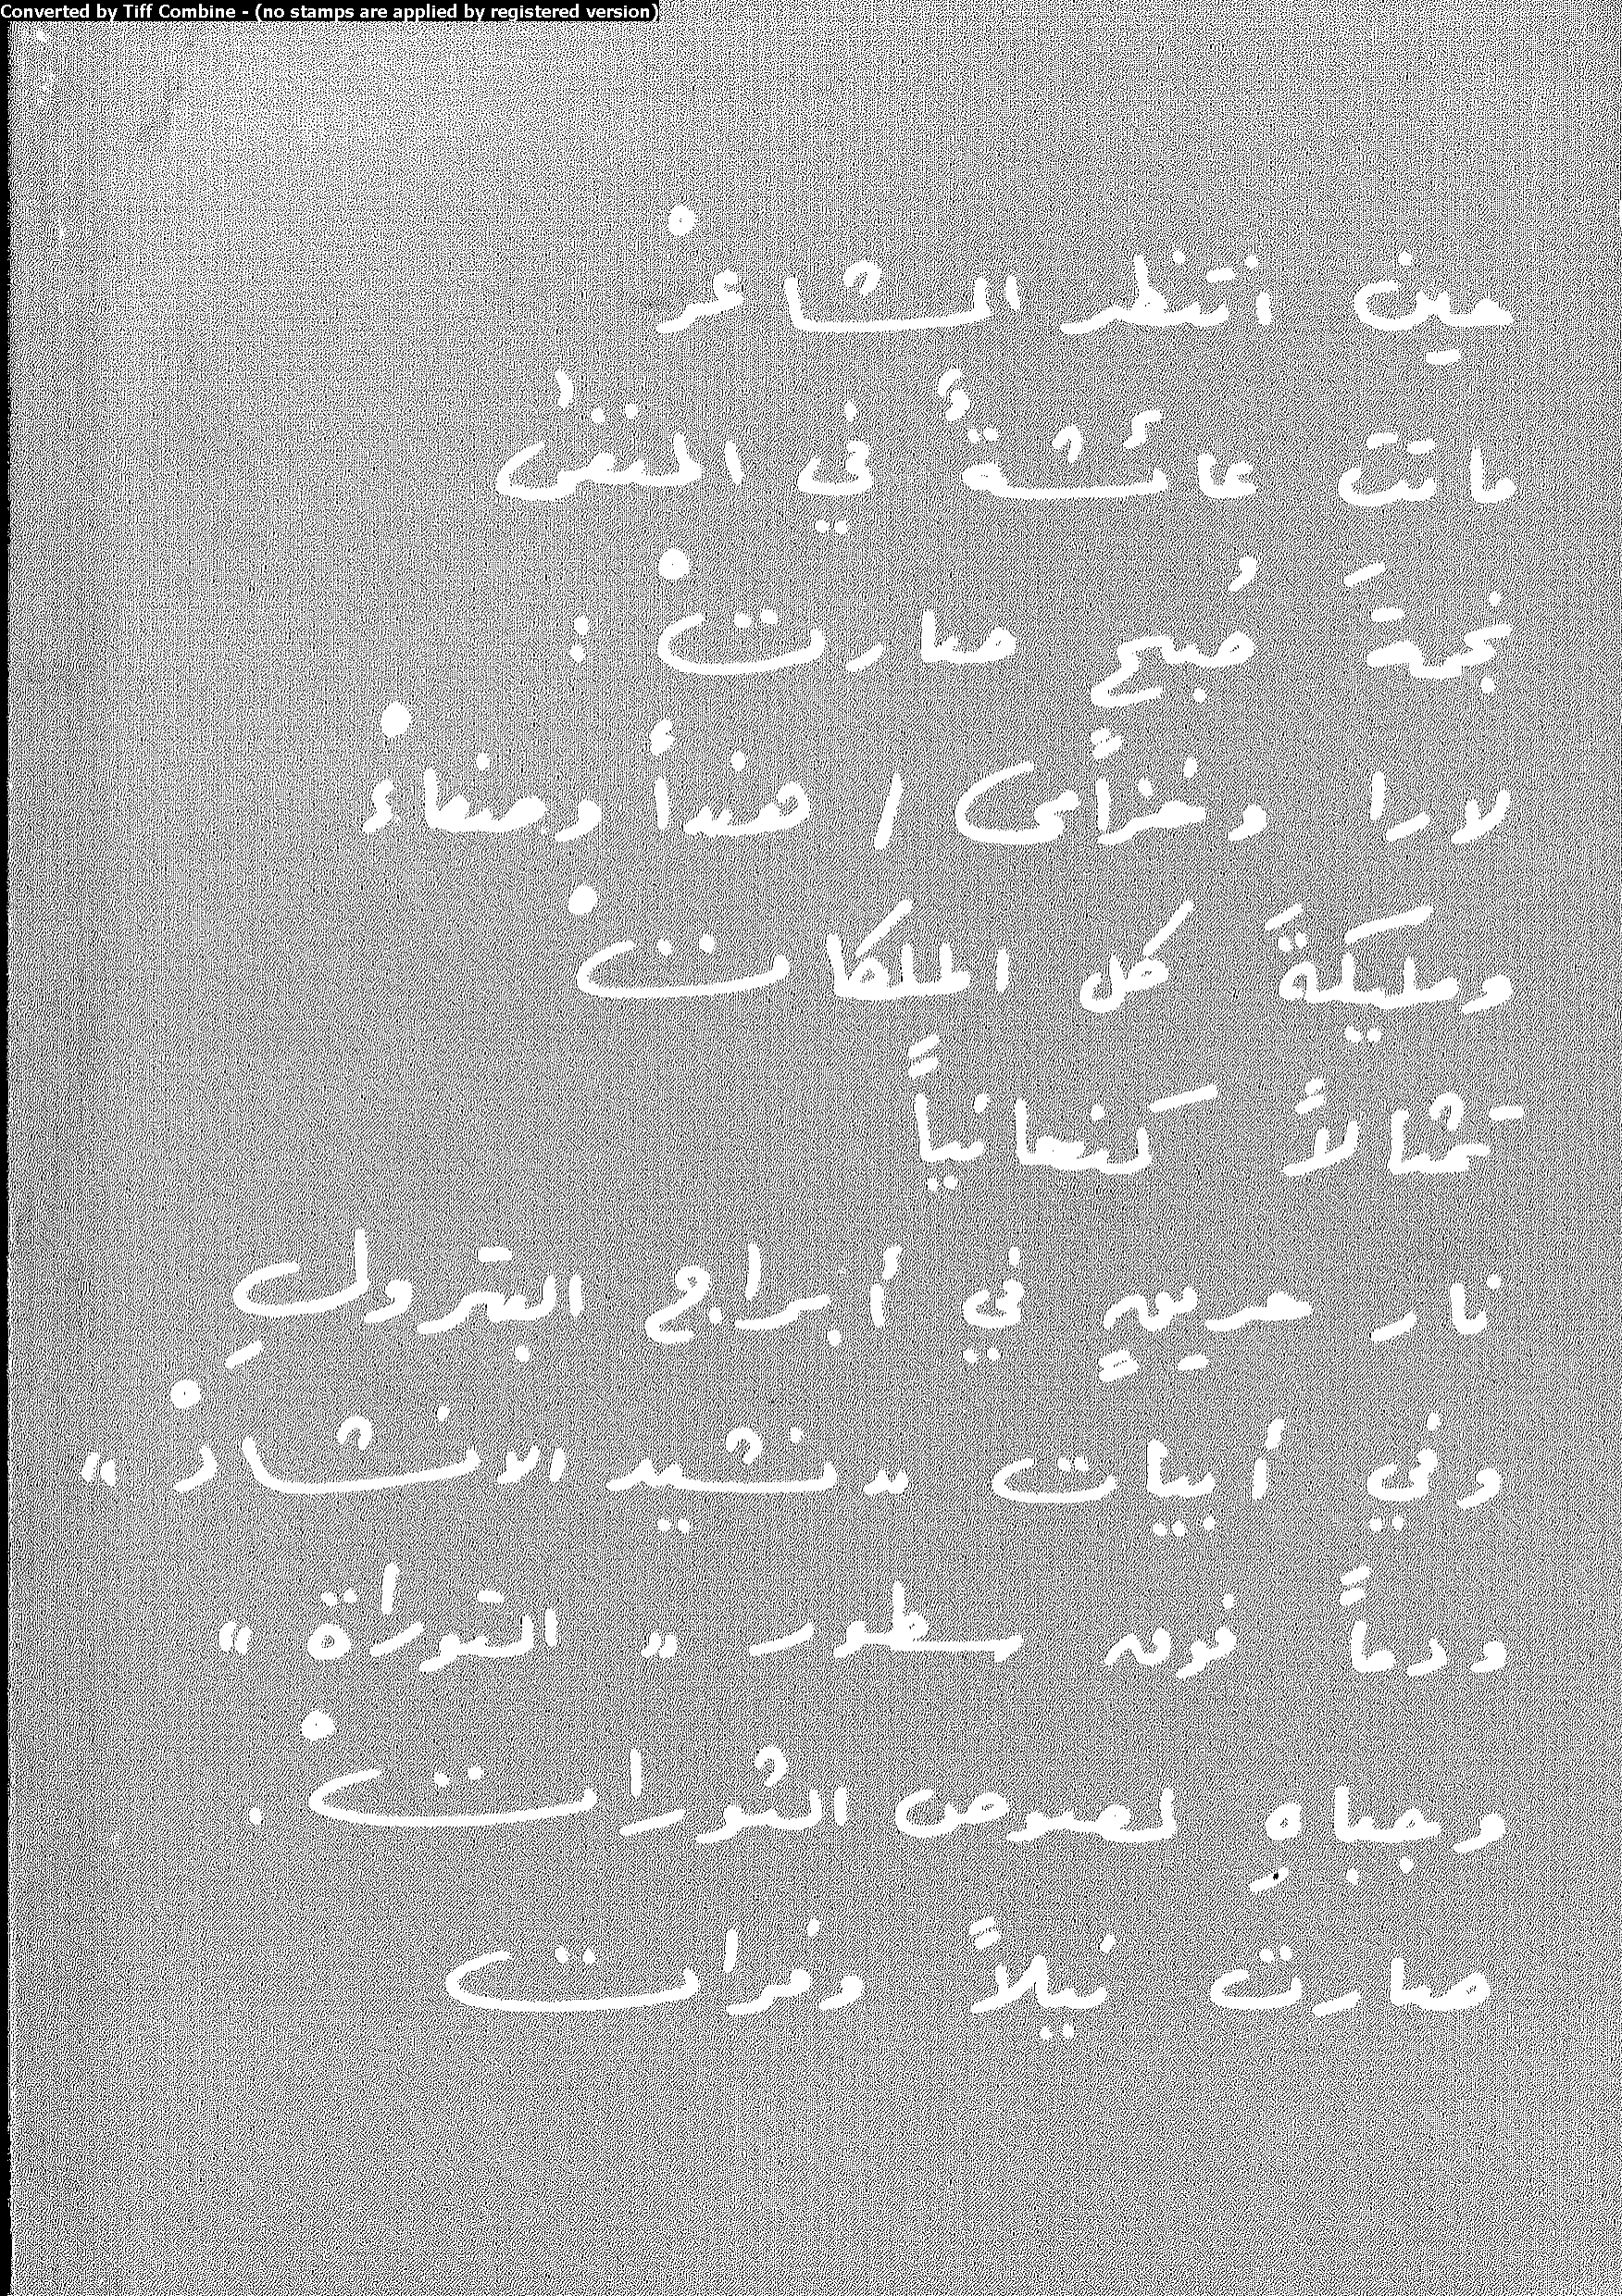 Converted by Tiff Combine - (no stamps are applied by registered version)
حين انتظر الشاعرْ
ماتت عائشةٌ في المنفىٰ
نجمةَ صُبحٍ صارتْ :
لارا وخزامىً / هنداً وصفاءْ
ومليكةَ كل الملكاتْ
تمثالاً كنعانياً
نار حريقٍ في أبراج البترولِ
وفي أبيات « نشيد الانشادْ »
ودماً فوق سطور « التوراة »
وجباهِ لصوص الثوراتْ .
صارت نيلاً وفرات